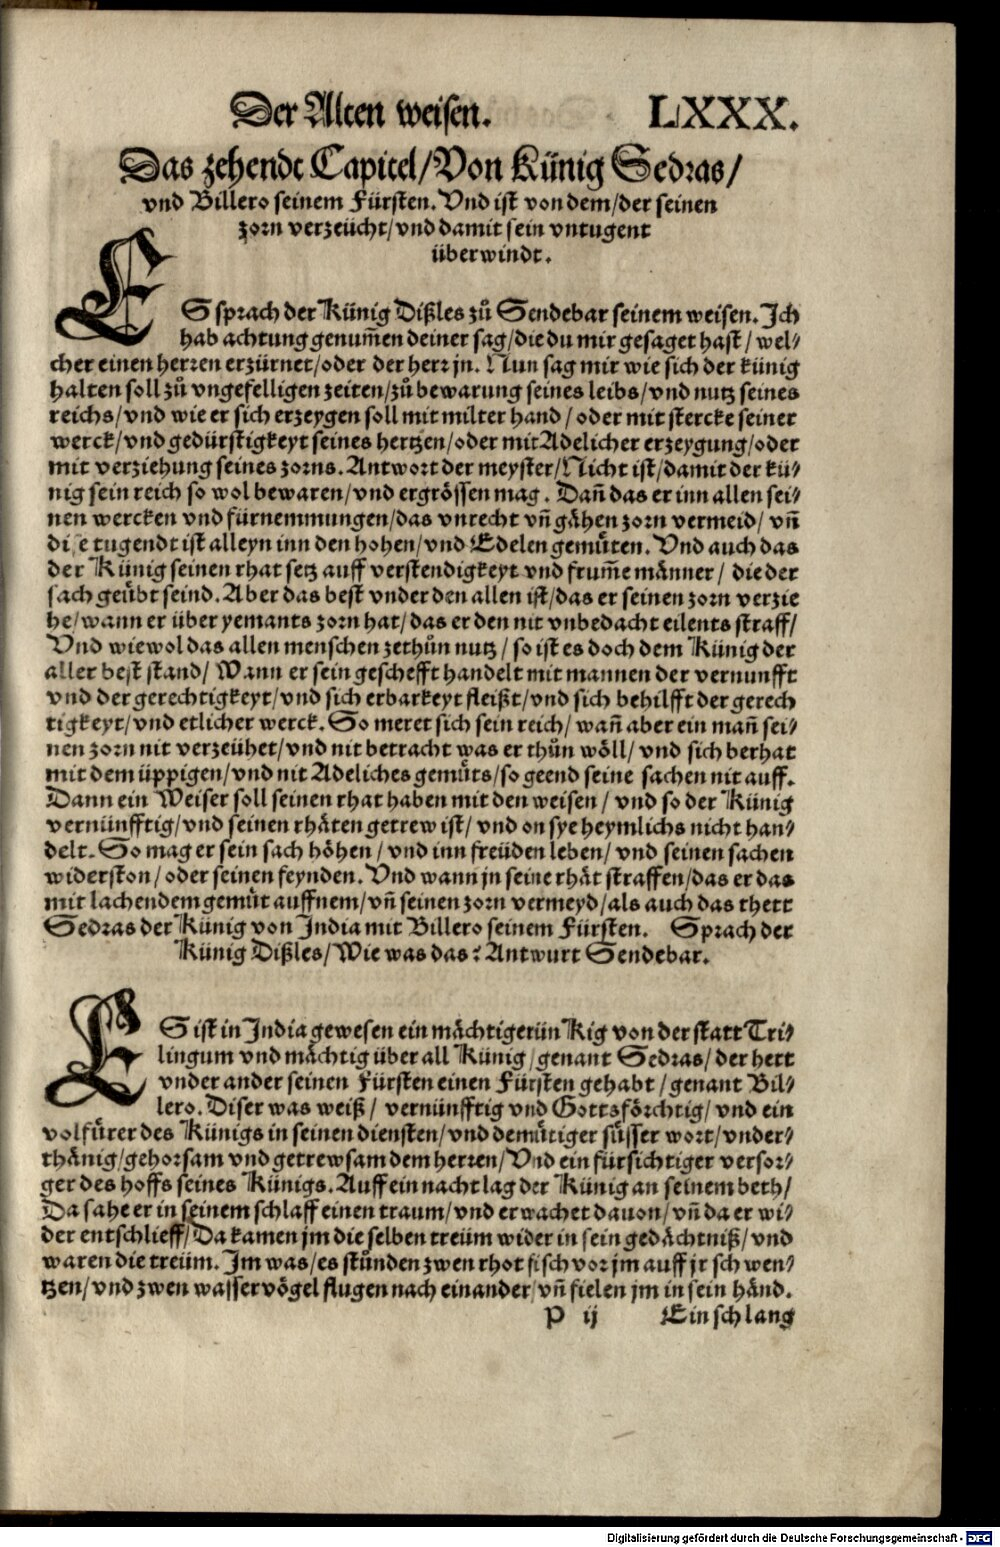 Der Alten weisen. LXXX.
Das zehendt Capitel/Von Künig Sedras/
vnd Billero seinem Fürsten. Vnd ist von dem/der seinen
zorn verzeücht/vnd damit sein vntugent
überwindt.
ES sprach der Künig Dißles zů Sendebar seinem weisen. Ich
hab achtung genum̃en deiner sag/die du mir gesaget hast/ wel⸗
cher einen herren erzürnet/oder der herr jn. Nun sag mir wie sich der künig
halten soll zů vngefelligen zeiten/zů bewarung seines leibs/vnd nutz seines
reichs/vnd wie er sich erzeygen soll mit milter hand/ oder mit stercke seiner
werck/vnd gedürstigkeyt seines hertzen/oder mit Adelicher erzeygung/oder
mit verziehung seines zorns. Antwort der meyster/Nicht ist/damit der kü⸗
nig sein reich so wol bewaren/vnd ergrössen mag. Dañ das er inn allen sei⸗
nen wercken vnd fürnemmungen/das vnrecht vñ gåhen zorn vermeid/ vñ
dise tugendt ist alleyn inn den hohen/vnd Edelen gemüten. Vnd auch das
der Künig seinen rhat setz auff verstendigkeyt vnd frum̃e männer/ die der
sach geübt seind. Aber das best vnder den allen ist/das er seinen zorn verzie
he/wann er über yemants zorn hat/das er den nit vnbedacht eilents straff/
Vnd wiewol das allen menschen zethůn nutz/ so ist es doch dem Künig der
aller best stand/ Wann er sein geschefft handelt mit mannen der vernunfft
vnd der gerechtigkeyt/vnd sich erbarkeyt fleißt/vnd sich behilfft der gerech
tigkeyt/vnd etlicher werck. So meret sich sein reich/ wañ aber ein mañ sei⸗
nen zorn nit verzeühet/vnd nit betracht was er thůn wöll/ vnd sich berhat
mit dem üppigen/vnd nit Adeliches gemüts/so geend seine sachen nit auff.
Dann ein Weiser soll seinen rhat haben mit den weisen/ vnd so der Künig
vernünfftig/vnd seinen rhäten getrew ist/ vnd on sye heymlichs nicht han⸗
delt. So mag er sein sach höhen/ vnd inn freüden leben/ vnd seinen sachen
widerston/oder seinen feynden. Vnd wann jn seine rhät straffen/das er das
mit lachendem gemüt auffnem/vñ seinen zorn vermeyd/als auch das thett
Sedras der Künig von India mit Billero seinem Fürsten. Sprach der
Künig Dißles/Wie was das? Antwurt Sendebar.
ES ist in India gewesen ein mächtiger ün Kig von der statt Tri⸗
lingum vnd mächtig über all Künig/genant Sedras/ der hett
vnder ander seinen Fürsten einen Fürsten gehabt/genant Bil⸗
lero. Diser was weiß/ vernünfftig vnd Gottsförchtig/ vnd ein
volfürer des Künigs in seinen diensten/vnd demütiger süsser wort/vnder⸗
thänig/gehorsam vnd getrewsam dem herren/Vnd ein fürsichtiger versor⸗
ger des hoffs seines Künigs. Auff ein nacht lag der Künig an seinem beth/
Da sahe er in seinem schlaff einen traum/vnd erwachet dauon/vñ da er wi⸗
der entschlieff/Da kamen jm die selben treüm wider in sein gedächtniß/vnd
waren die treüm. Im was/es stůnden zwen rhot fisch vor jm auff jr schwen⸗
tzen/vnd zwen wasser vögel flugen nach einander/vñ fielen jm in sein händ.
P ij Ein schlang
Digitalisierung gefördert durch die Deutsche Forschungsgemeinschaft - DFG